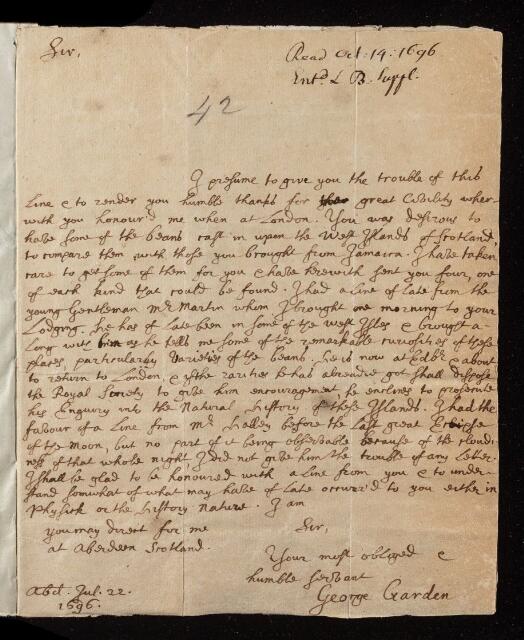 Sir,
Read Oct: 14: 1696
Entd L B. Suppl.
42
I presume to give you the trouble of this
Line & to render you humble thanks for great Civility wher-
with you honour'd me when at London. You was desirous to
have some of the beans cast in upon the West Islands of Scotland,
to compare them with those you brought from Jamaica. I have taken
care to get some of them for you & have herewith sent you four, one
of each kind that could be found. I had a Line of late from the
young Gentleman Mr Martin whom I brought one morning to your
Lodging. he has of Late been in some of the West Isles & brought a-
long with him as he tells me some of the remarkable curiosities of these
places, particularly Varieties of the beans. he is now at Edbr & about
to return to London, & if the rarities he has alreadie got shall dispose
the Royal Society to give him encouragement, he enclines to prosecute
his Enquiry into the Natural History of these Islands. I had the
favour of a Line from Mr Halley before the Last great Eclipse
of the Moon, but no part of it being observable because of the cloudi-
ness of that whole night, I did not give him the trouble of any Letter.
I shall be glad to be honoured with a Line from you & to under-
stand somwhat of what may have of late occurr'd to you either in
Physick or the History Nature. I am
you may direct for me
at Aberdeen Scotland.
Sir,
Your most obliged &
humble servant
George Garden
Abd. Jul. 22.
1696.